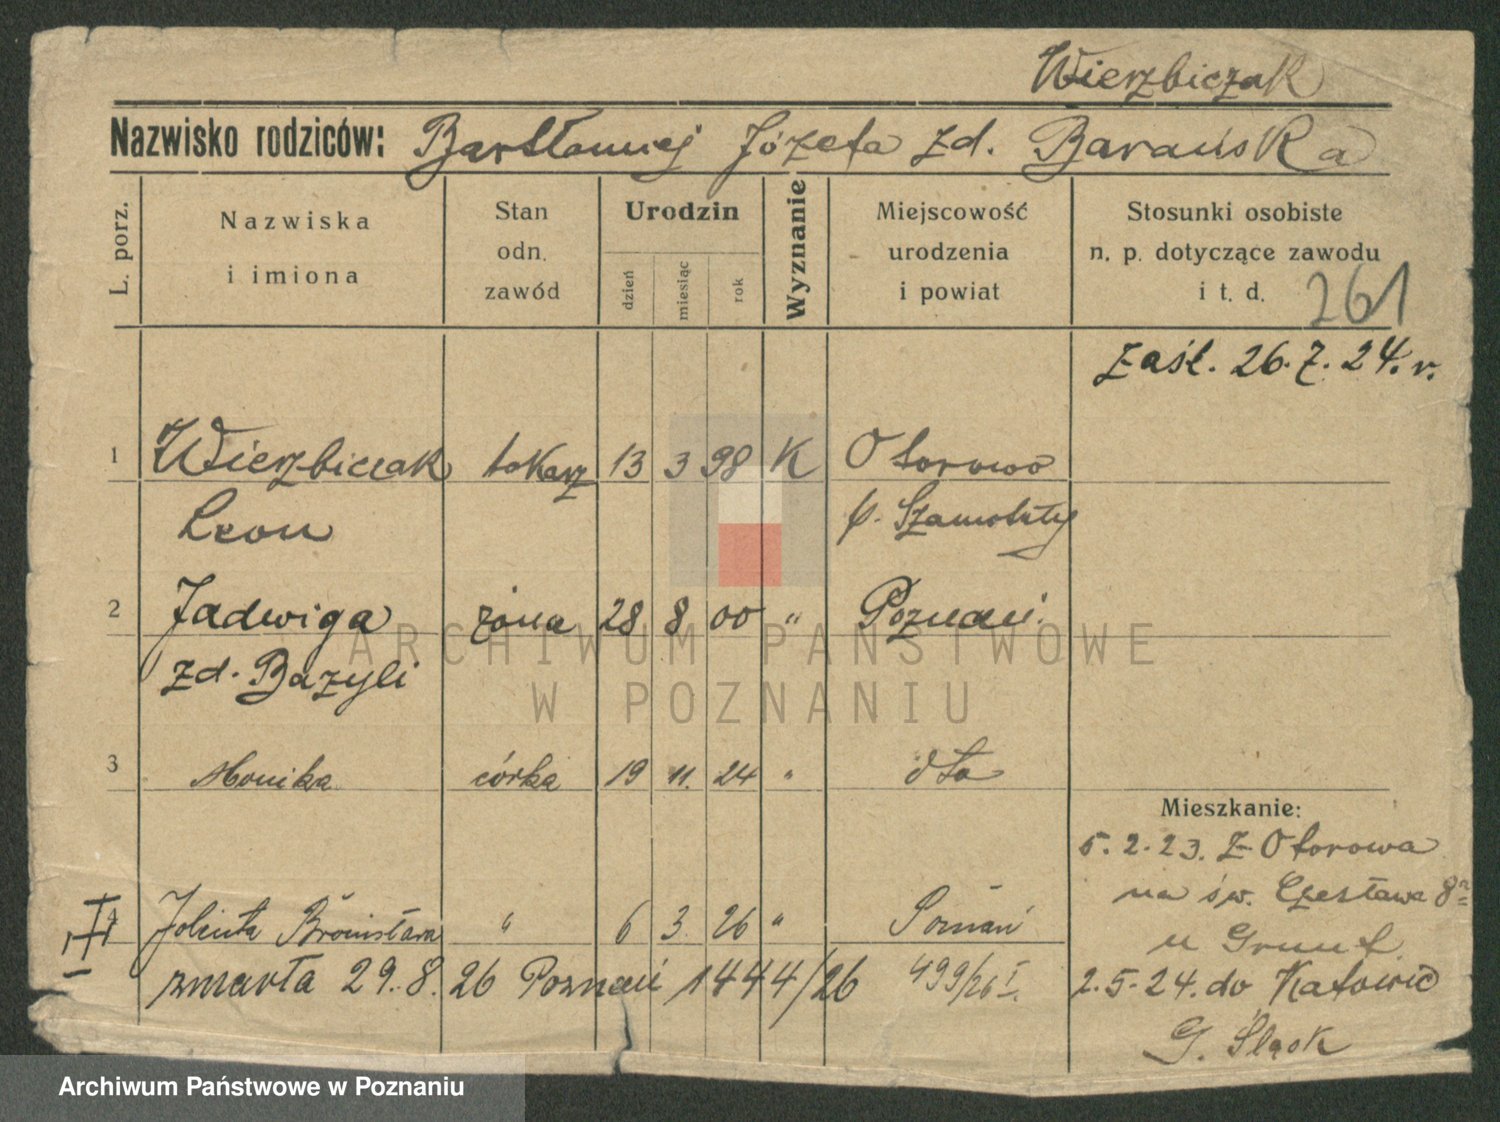 Wierzbiczak
Nazwisko rodziców: Bartłomiej Józefa zd. Barańska
L. porz.
Nazwiska
i imiona
Stan
odn.
zawód
Urodzin
dzień
miesiąc
rok
Wyznanie
Miejscowość
urodzenia
i powiat
Stosunki osobiste
n. p. dotyczące zawodu
i t. d.
261
zaśl. 26.7.24.r.
1 Wierzbiczak tokarz 13 3 98 K Otorowo
Leon p. Szamotuły
2 Jadwiga żona 28 8 00 " Poznań.
zd. Bazyli
3 Monika córka 19 11. 24 " dto
Mieszkanie:
5.2.23. z Otorowa
na św. Czesława 8
u Grunt.
4 Jolenta Bronisława " 6 3. 26 " Poznań
zmarła 29.8.26 Poznań 1444/26 499/26 I.
2.5.24. do Katowic
G. Śląsk
ARCHIWUM PAŃSTWOWE
W POZNANIU
Archiwum Państwowe w Poznaniu